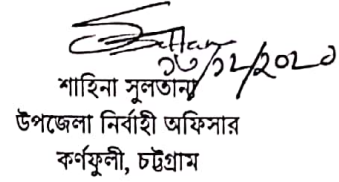 ১৩/১২/২০২০
শাহিনা সুলতানা
উপজেলা নির্বাহী অফিসার
কর্ণফুলী, চট্টগ্রাম